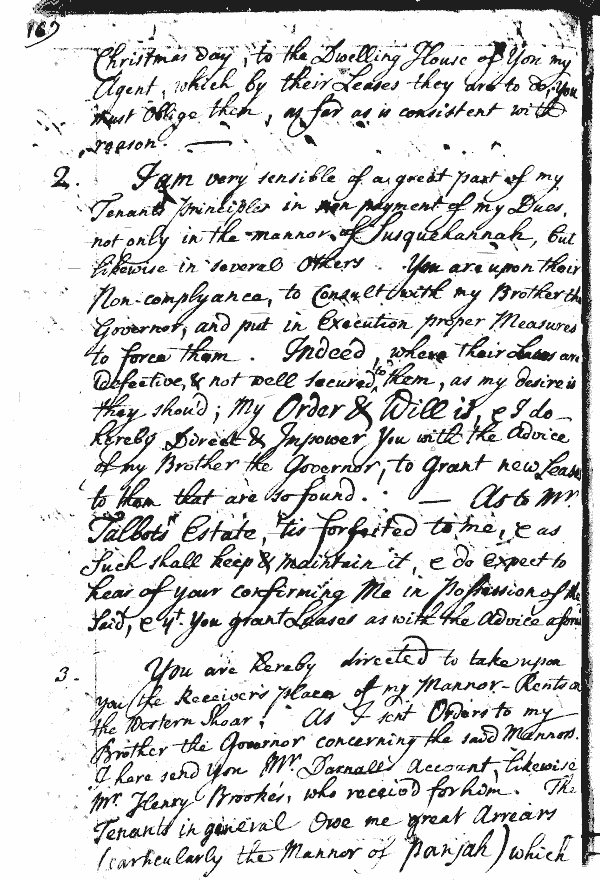 167
Christmas day, to the Dwelling House of You my
Agent, which by their Leases they are to do, You
must oblige them, as far as is consistent with
reason. —
2. I am very sensible of a great part of my
Tenants principles in non payment of my Dues,
not only in the mannor of Susquehannah, but
likewise in several Others. You are upon their
Non-complyance, to Consult with my Brother the
Governor, and put in Execution proper Measures
to force them. Indeed, where their Leases are
defective, & not well secured to them, as my desire is
they should; My Order & Will is, & I do
hereby Direct & Impower You with the Advice
of my Brother the Governor, to grant new Leases
to them that are so found. — As to Mr.
Talbots Estate, 'tis forfeited to me, & as
Such shall keep & maintain it, & do expect to
hear of your confirming Me in Possession of the
Said, & yt. You grant Leases as with the Advice
3. You are hereby directed to take upon
you the Receivers place of my Mannor-Rents on
the Western Shoar. As I sent Orders to my
Brother the Governor concerning the said Mannors.
I have send You Mr. Darnalls Account, likewise
Mr. Henry Brookes, who received for him. The
Tenants in general Owe me great Arrears
(particularly the Mannor of Panjah) which